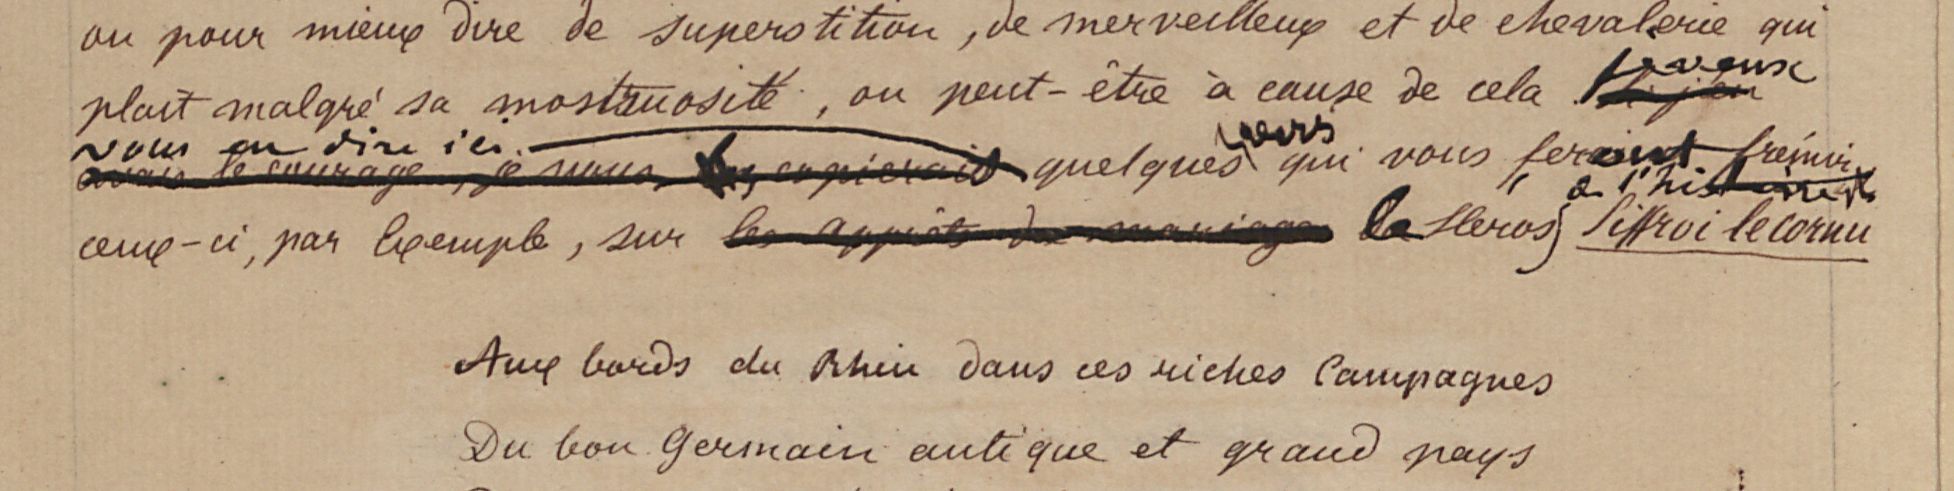 ou pour mieux dire de superstition, de merveilleux et de chevalerie qui
plait malgré sa mostruosité, ou peut-être à cause de cela. je veux
vous en dire ici
avais le courage, je vous copierais quelques vers qui vous feraient frémir
à l'histoire
ceux-ci, par Exemple, sur les apprêts du mariage le Heros, Siffroi le cornu
Aux bords du Rhin dans ces riches Campagnes
Du bon Germain antique et grand pays